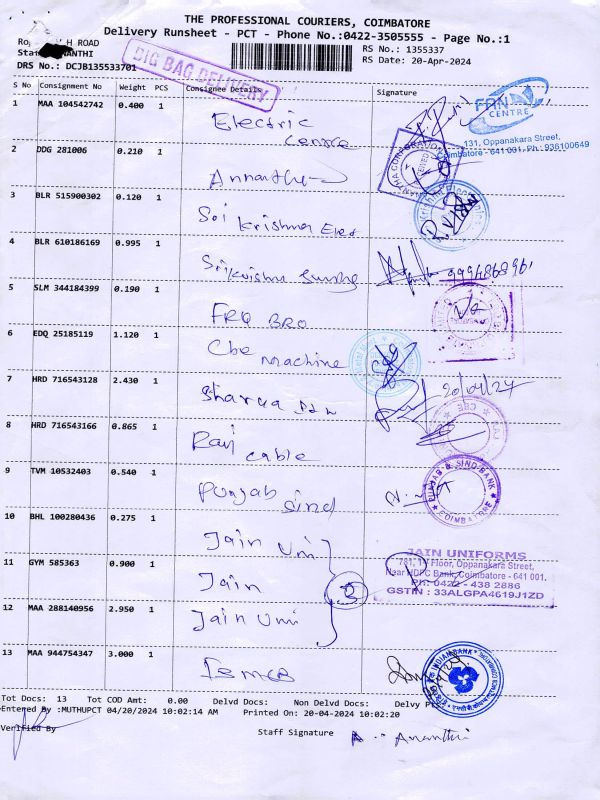 THE PROFESSIONAL COURIERS, COIMBATORE
Delivery Runsheet - PCT - Phone No.:0422-3505555 - Page No.:1
H ROAD
RS No.: 1355337
ANANTHI
RS Date: 20-Apr-2024
DRS No.: DCJB135533701
BIG BAG DELIVERY
S No Consignment No Weight PCS Consignee Details Signature
1 MAA 104542742 0.400 1 Electric centre
FAN CENTRE
131, Oppanakara Street,
Coimbatore - 641 001. Ph : 936100649
2 DDG 281006 0.210 1
3 BLR 515900302 0.120 1 Sri Krishna Elec
4 BLR 610186169 0.995 1 Sri Krishna 9994868961
5 SLM 344184399 0.190 1 FRQ BRO
6 EDQ 25185119 1.120 1 Cbe machine
7 HRD 716543128 2.430 1 Sharada 20/04/24
8 HRD 716543166 0.865 1 Ravi cable
9 TVM 10532403 0.540 1 Punjab Sind
PUNJAB & SIND BANK
COIMBATORE
10 BHL 100280436 0.275 1 Jain Uni
JAIN UNIFORMS
781, 1st Floor, Oppanakara Street,
Near HDFC Bank, Coimbatore - 641 001.
PH: 0422 - 438 2886
GSTIN : 33ALGPA4619J1ZD
11 GYM 585363 0.900 1 Jain
12 MAA 288140956 2.950 1 Jain Uni
13 MAA 944754347 3.000 1
INDIAN BANK
Tot Docs: 13 Tot COD Amt: 0.00 Delvd Docs: Non Delvd Docs: Delvy
Entered By :MUTHUPCT 04/20/2024 10:02:14 AM Printed On: 20-04-2024 10:02:20
Verified By
Staff Signature A. Ananthi